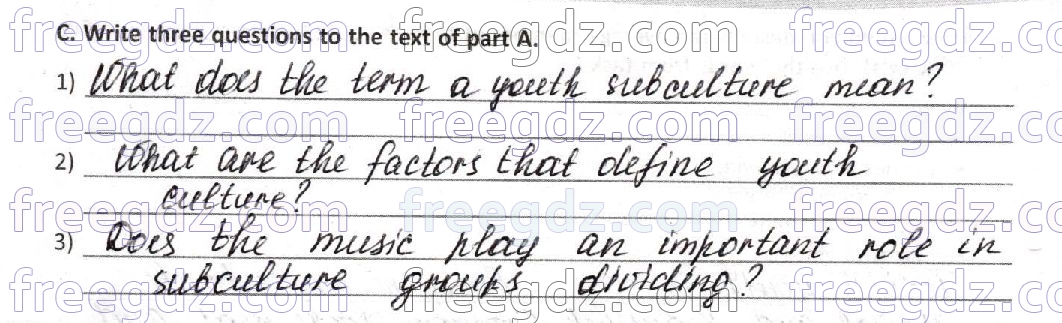 C. Write three questions to the text of part A.
1) What does the term a youth subculture mean?
2) What are the factors that define youth
culture?
3) Does the music play an important role in
subculture groups dividing?
freegdz.com freegdz.com freegdz.co
freegdz.com freegdz.com freegdz.co
freegdz.com freegdz.com freegdz.co
freegdz.com freegdz.com freegdz.co